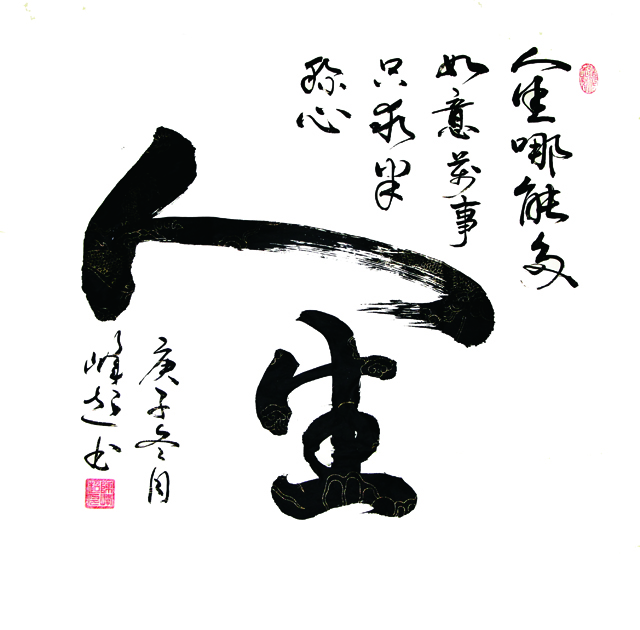 人生哪能多
如意萬事
只求半
称心
人生
庚子冬月
峰超书